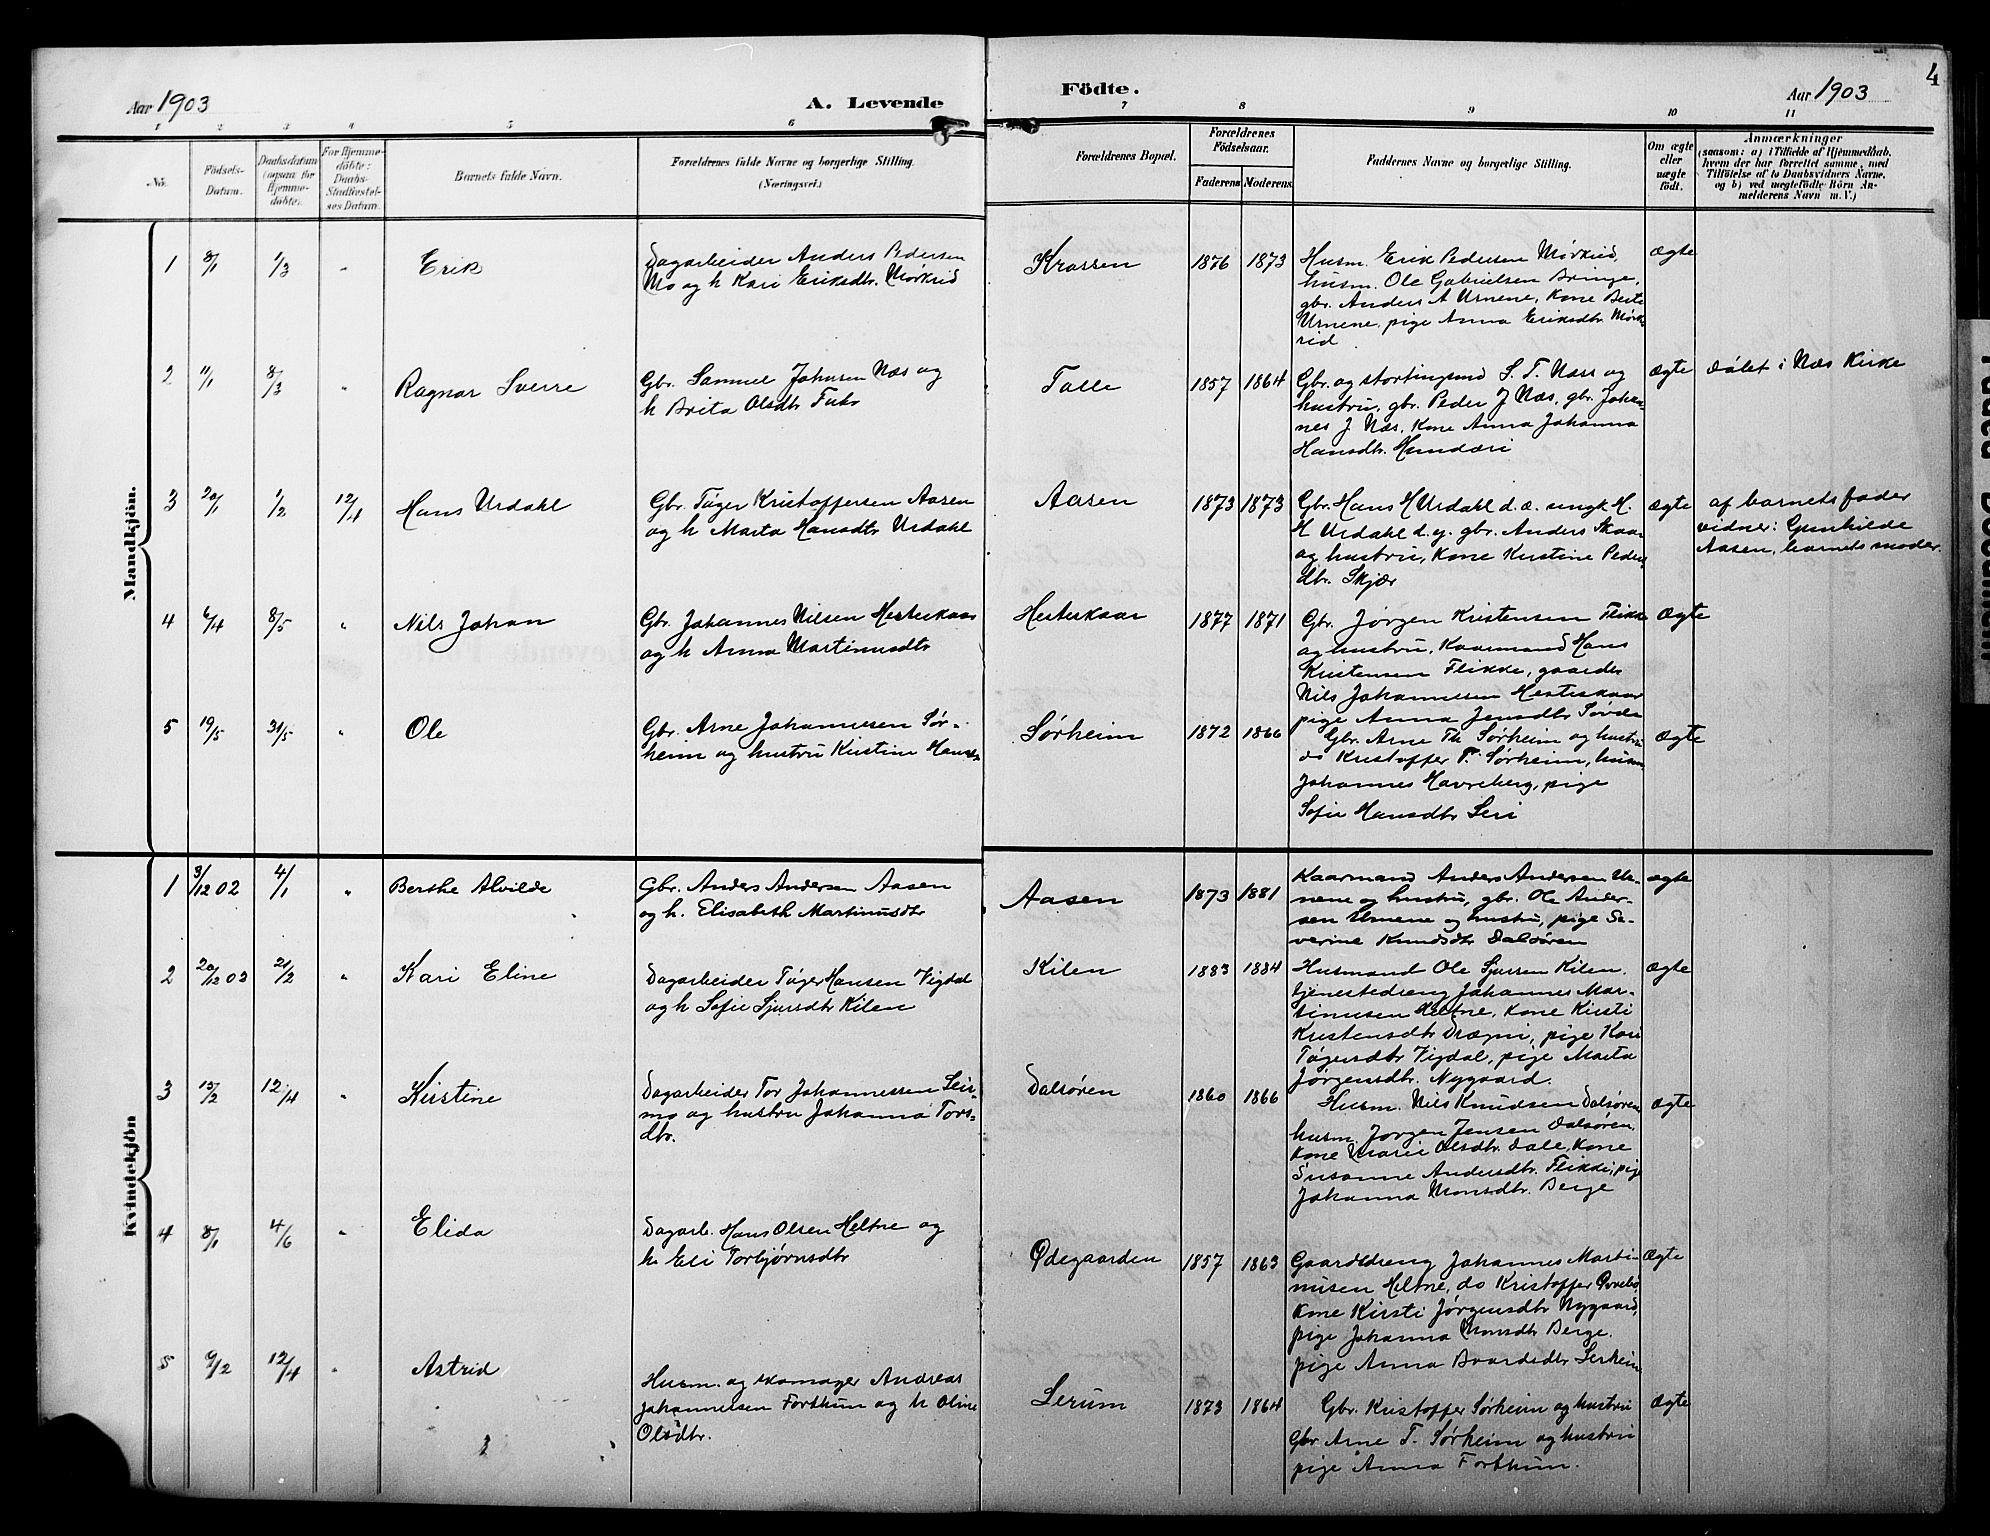 4
Aar 1903
A. Levende
Födte.
Aar 1903
1 2 3 4 5 6 7 8 9 10 11
No.
Födsels-
Datum.
Daabsdatum
(ogsaa for
Hjemme-
döbte).
For Hjemme-
döbte:
Daabs-
Stadfæstel-
ses Datum.
Barnets fulde Navn.
Forældrenes fulde Navne og borgerlige Stilling.
(Næringsvei.)
Forældrenes Bopæl.
Forældrenes
Födselsaar.
Faderens
Moderens
Faddernes Navne og borgerlige Stilling.
Om ægte
eller
uægte
födt.
Anmærkninger
(saasom: a) i Tilfælde af Hjemmedaab,
hvem der har forrettet samme, med
Tilföielse af to Daabsvidners Navne,
og b) ved uægtefödte Börn An-
melderens Navn m. V.)
Mandkjön.
1 8/1 1/3 " Erik
Dagarbeider Anders Pedersen
Mo og h Kari Eriksdtr. Mørkrid
Krossen
1876 1873
Husm. Erik Pedersen Mørkrid,
husm. Ole Gabrielsen Bringe,
gbr. Anders A Urnene, Kone Berte
Urnene, pige Anna Eriksdtr. Mørk-
rid
ægte
2 11/1 8/3 " Ragnar Sverre
Gbr. Samuel Johnsen Næs og
h Brita Olsdtr
Talle
1857 1864
Gbr. og stortingsmd S. T. Næss og
hustru, gbr. Peder J Næs, gbr. Johan-
nes J Næs, Kone Anna Johanna
Hansdtr.
ægte
døbt i Næs Kirke
3 20/1 1/2 12/4 Hans Urdahl
Gbr. Tøger Kristoffersen Aasen
og h Marta Hansdtr Urdahl
Aasen
1873 1873
Gbr. Hans H Urdahl d. æ. ungk H.
H Urdahl d. y. gbr. Anders Skaar
og hustru, Kone Kristine Peders-
dtr. Skjær
ægte
af barnets fader
vidner: Gunhilde
Aasen, barnets moder.
4 6/4 8/5 " Nils Johan
Gbr. Johannes Nilsen Hesteskaar
og h Anna Martinusdtr
Hesteskaar
1877 1871
Gbr. Jørgen Kristensen Flikke
og hustru, Kaarmand Hans
Kristensen Flikke, gaardds
Nils Johannesen Hesteskaar
pige Anna Jensdtr Søvde
Ægte
5 19/5 31/5 " Ole
Gbr. Arne Johannesen Sør-
heim og hustru Kristine Hansdtr
Sørheim
1872 1866
Gbr. Arne Th Sørheim og hustru
do Kristoffer T. Sørheim, husm
Johannes Havreberg, pige
Sofie Hansdtr Leri
Ægte
Kvindekjön
1 3/12 02 4/1 " Berthe Alvilde
Gbr. Anders Andersen Aasen
og h. Elisabeth Martinusdtr
Aasen
1873 1881
Kaarmand Anders Andersen Ur-
nene og hustru, gbr. Ole Ander-
sen Urnene og hustru, pige Se-
verine Knudsdtr Dalsøren
ægte
2 20/12 02 21/2 " Kari Eline
Dagarbeider Tøger Hansen Vigdal
og h Sofie Sjursdtr Kilen
Kilen
1883 1884
Husmand Ole Sjursen Kilen.
tjenestedreng Johannes Mar-
tinusen Heltne, Kone Kirsti
Kristensdtr Drægni, pige Kari
Tøgersdtr Vigdal, pige Marta
Jørgensdtr. Nygaard.
ægte
3 15/2 12/4 " Kirstine
Dagarbeider Tor Johannessen Leir-
mo og hustru Johanna Tors-
dtr.
Dalsøren
1860 1866
Husm. Nils Knudsen Dalsøren
husm. Jørgen Jensen Dalsøren,
Kone Marie Olsdtr. Dale, Kone
Susanne Andersdtr. Flikke, pige
Johanna Monsdtr. Berge
Ægte
4 8/1 4/6 " Elida
Dagarb. Hans Olsen Heltne og
h. Eli Torbjørnsdtr
Ødegaarden
1857 1863
Gaarddreng Johannes Marti-
nusen Heltne, do Kristoffer Øvrebø,
Kone Kirsti Jørgensdtr Nygaard,
pige Johanna Monsdtr Berge.
pige Anna Baardsdtr Sørheim
Ægte
5 6/12 12/4 " Astrid
Husm. og skomager Andreas
Johannesen Forthun og h Oline
Olsdtr.
Lerum
1873 1864
Gbr. Kristoffer Sørheim og hustru
Gbr Arne T. Sørheim og hustru
pige Anna Forthun.
Ægte